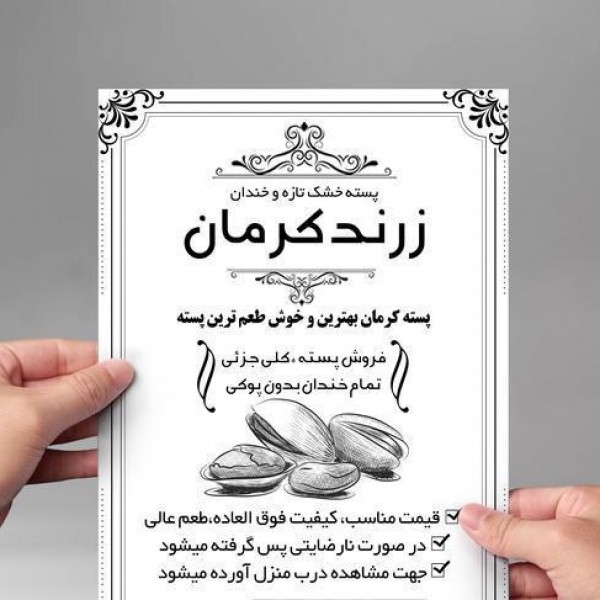 پسته خشک تازه و خندان
زرند کرمان
پسته کرمان بهترین و خوش طعم ترین پسته
فروش پسته ،کلی جزئی
تمام خندان بدون پوکی
قیمت مناسب، کیفیت فوق العاده،طعم عالی
در صورت نارضایتی پس گرفته میشود
جهت مشاهده درب منزل آورده میشود